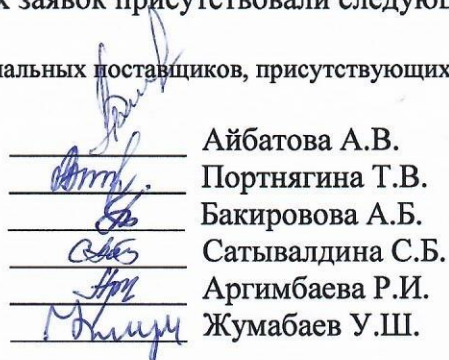 х заявок присутствовали следующ
иальных поставщиков, присутствующих
Айбатова А.В.
Портнягина Т.В.
Бакировова А.Б.
Сатывалдина С.Б.
Аргимбаева Р.И.
Жумабаев У.Ш.